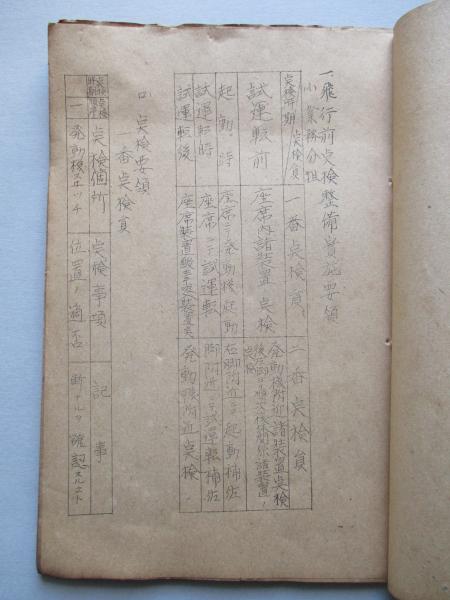 一、飛行前点検整備実施要領
小業務分担
点検時期 点検員 一番点検員 二番点検員
試運転前 座席内諸装置ノ点検 発動機附近諸装置点検
起動時 座席ニテ発動機起動 右脚附近ニテ起動補佐
試運転時 座席ニテ試運転 脚附近ニテ試運転補佐
試運転後 座席装置 発動機附近点検
ロ、点検要領
一番点検員
点検時期 点検順序 点検個所 点検事項 記事
一 発動機スヰッチ 位置ノ適否 断ナルヲ確認スルコト